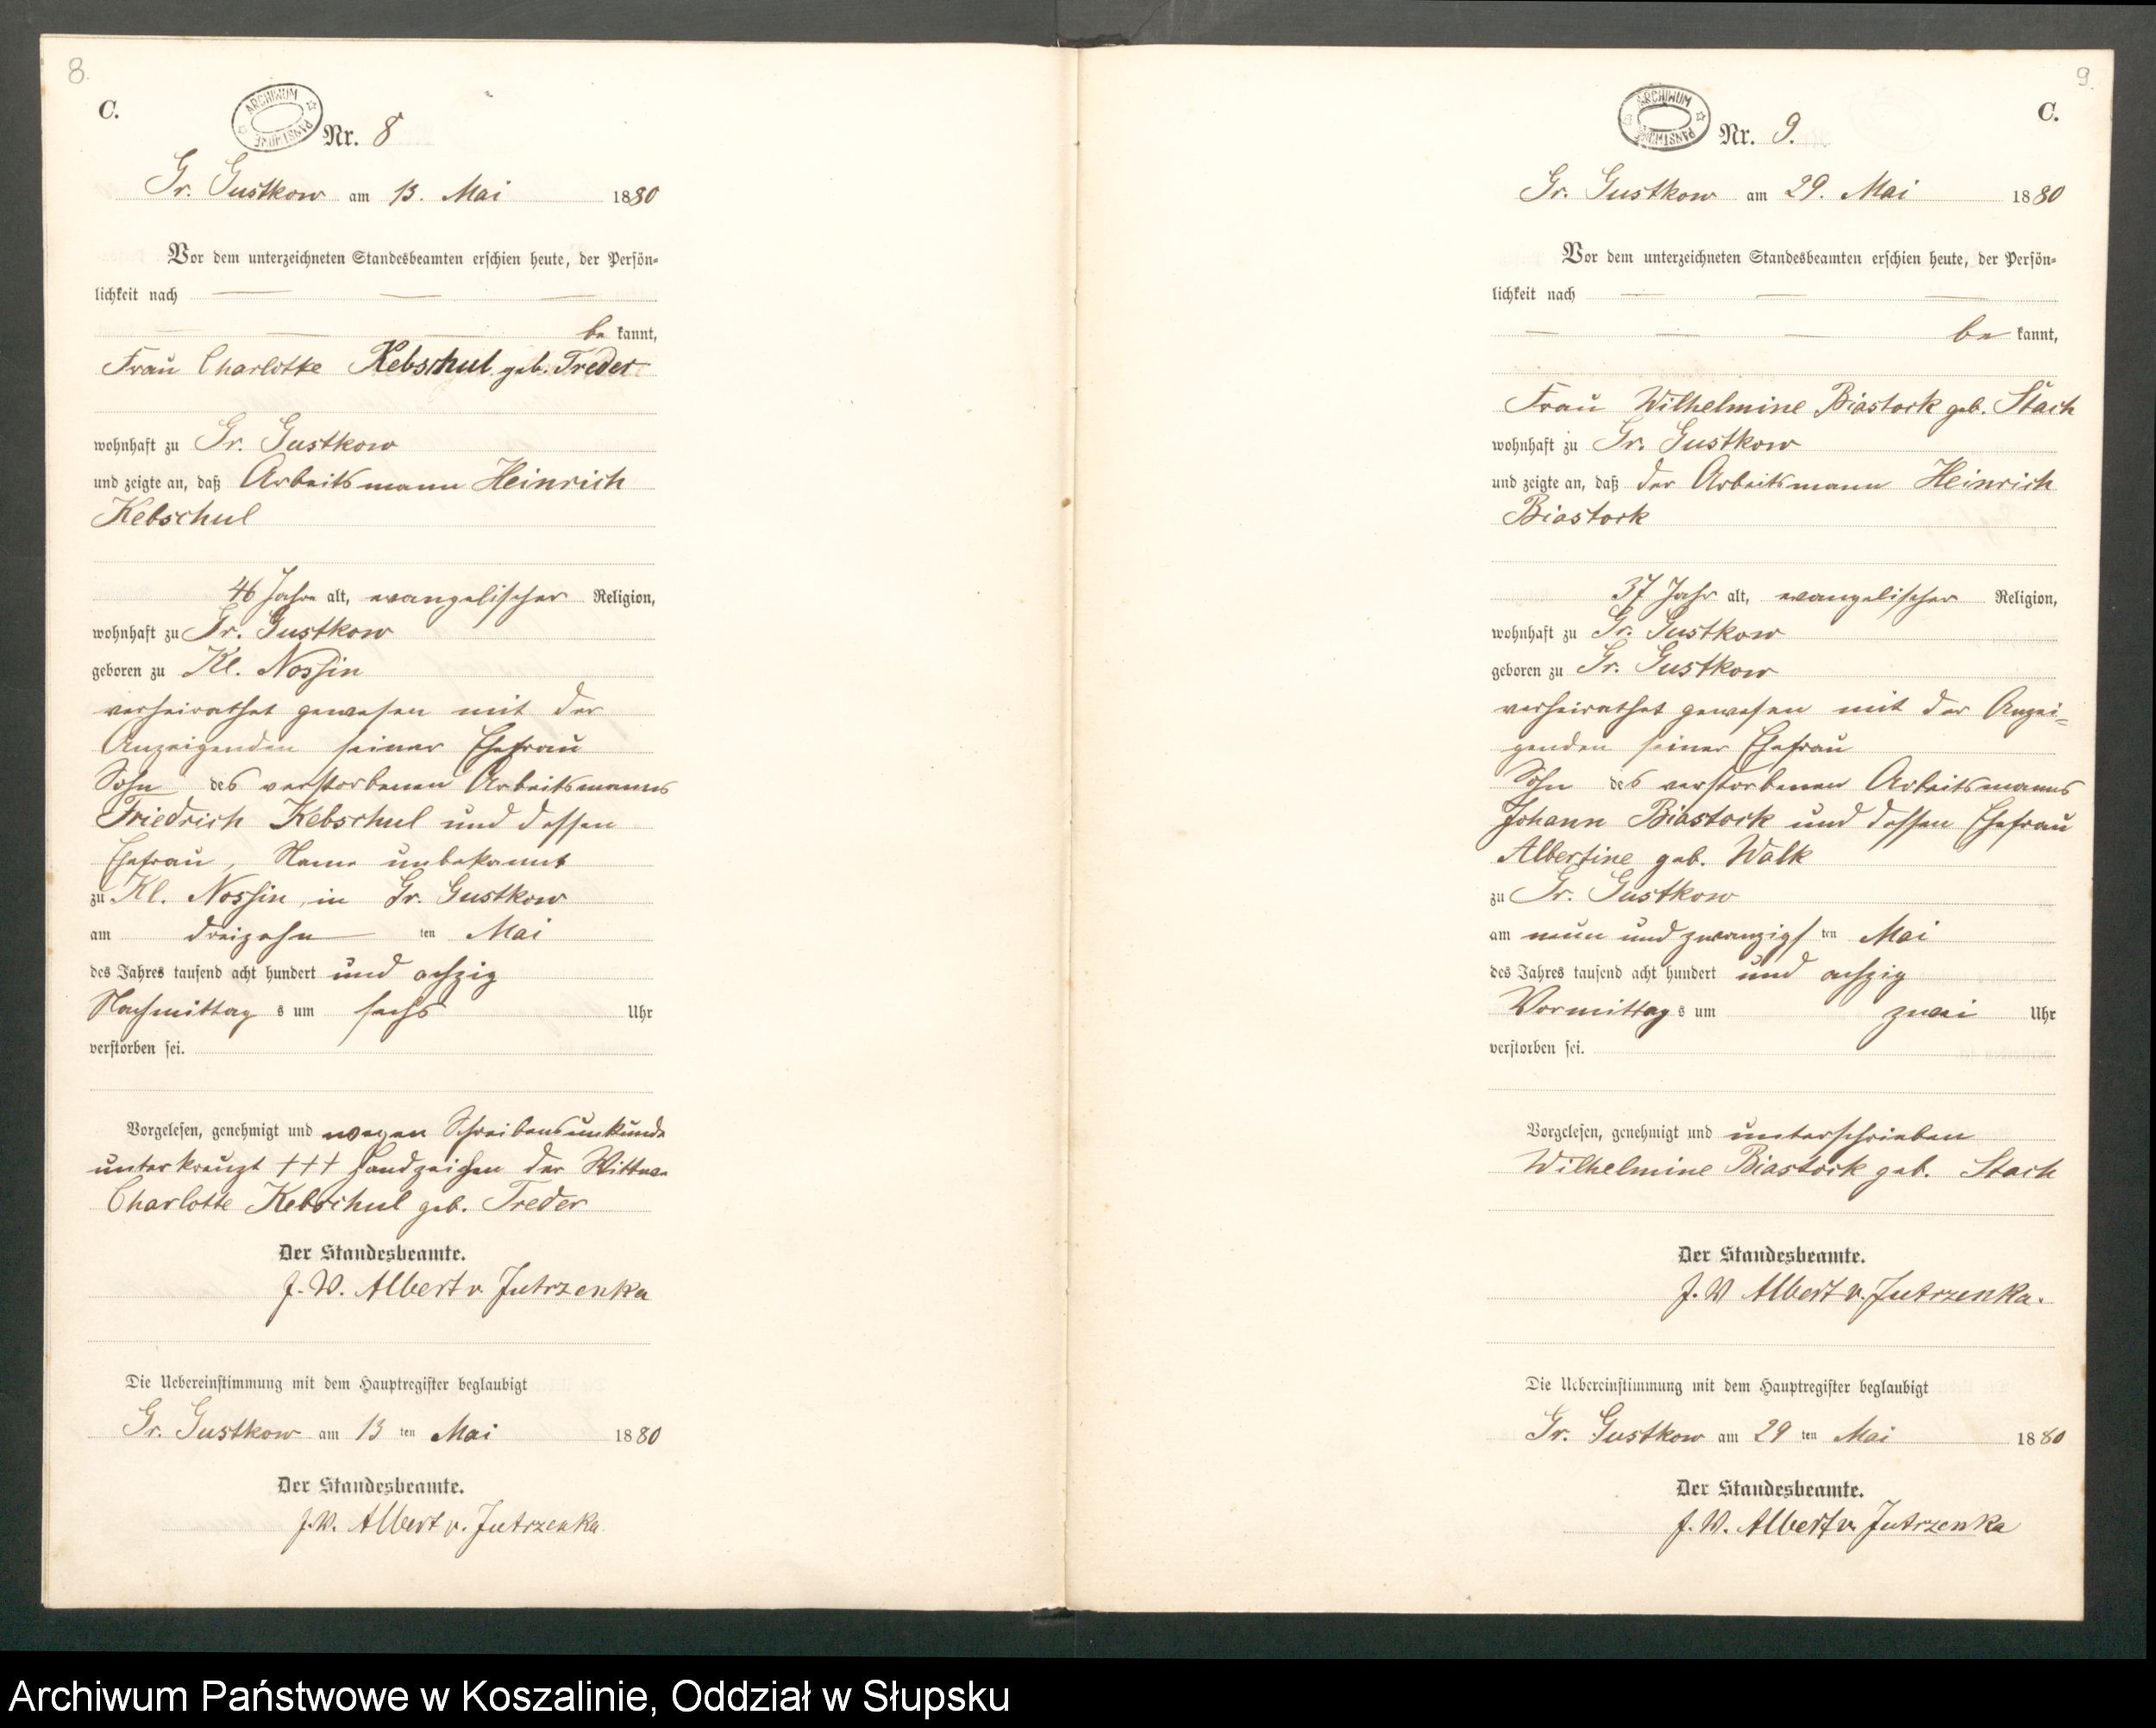 8.
C.
ARCHIWUM PAŃSTWOWE
Nr. 8
Gr. Gustkow am 13. Mai 1880
Vor dem unterzeichneten Standesbeamten erschien heute, der Persön-
lichkeit nach — — —
— — — be kannt,
Frau Charlotte Kebschul geb. Treder
wohnhaft zu Gr. Gustkow
und zeigte an, daß Arbeitsmann Heinrich
Kebschul
46 Jahr alt, evangelischer Religion,
wohnhaft zu Gr. Gustkow
geboren zu Kl. Nossin
verheirathet gewesen mit der
Anzeigenden seiner Ehefrau
Sohn des verstorbenen Arbeitsmanns
Friedrich Kebschul und dessen
Ehefrau, Name unbekannt
zu Kl. Nossin, in Gr. Gustkow
am dreizehn ten Mai
des Jahres tausend acht hundert und achzig
Nachmittag s um sechs Uhr
verstorben sei.
Vorgelesen, genehmigt und wegen Schreibensunkunde
unterkreuzt +++ Handzeichen der Wittwe
Charlotte Kebschul geb. Treder
Der Standesbeamte.
J. W. Albert v. Jutrzenka
Die Uebereinstimmung mit dem Hauptregister beglaubigt
Gr. Gustkow am 13 ten Mai 1880
Der Standesbeamte.
J. W. Albert v. Jutrzenka
9.
C.
ARCHIWUM PAŃSTWOWE
Nr. 9.
Gr. Gustkow am 29. Mai 1880
Vor dem unterzeichneten Standesbeamten erschien heute, der Persön-
lichkeit nach — — —
— — — be kannt,
Frau Wilhelmine Biastock geb. Stach
wohnhaft zu Gr. Gustkow
und zeigte an, daß der Arbeitsmann Heinrich
Biastock
37 Jahr alt, evangelischer Religion,
wohnhaft zu Gr. Gustkow
geboren zu Gr. Gustkow
verheirathet gewesen mit der Anzei=
genden seiner Ehefrau
Sohn des verstorbenen Arbeitsmanns
Johann Biastock und dessen Ehefrau
Albertine geb. Walk
zu Gr. Gustkow
am neun und zwanzigs ten Mai
des Jahres tausend acht hundert und achzig
Vormittag s um zwei Uhr
verstorben sei.
Vorgelesen, genehmigt und unterschrieben
Wilhelmine Biastock geb. Stach
Der Standesbeamte.
J. W Albert v. Jutrzenka.
Die Uebereinstimmung mit dem Hauptregister beglaubigt
Gr. Gustkow am 29 ten Mai 1880
Der Standesbeamte.
J. W. Albert v. Jutrzenka
Archiwum Państwowe w Koszalinie, Oddział w Słupsku